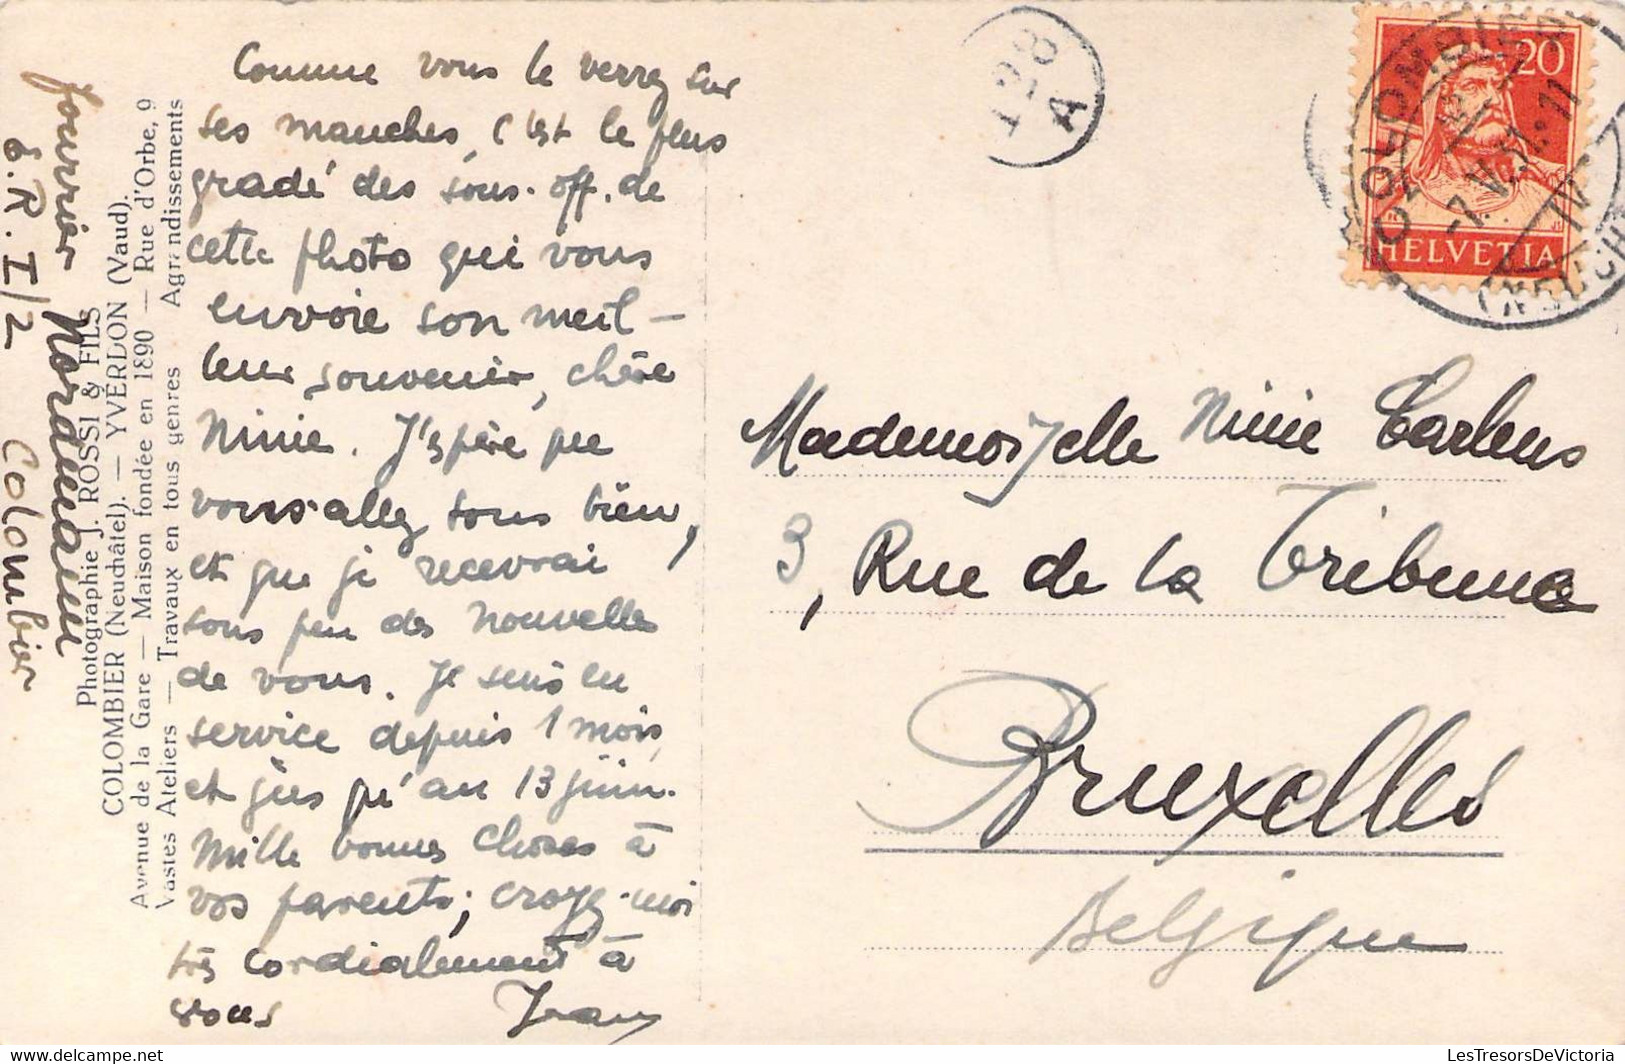 Comme vous le verrez sur
ses manches, c'est le plus
gradé des sous-off. de
cette photo qui vous
envoie son meil-
leur souvenir, chère
Ninie. J'espère que
vous allez tous bien,
et que je recevrai
sous peu des nouvelles
de vous. Je suis en
service depuis 1 mois
et j'y suis qu'au 13 juin.
Mille bonnes choses à
vos parents; croyez-moi
très cordialement à
vous
Fourrier
E.R. I/2 Colombier
Photographie J. ROSSI & FILS
COLOMBIER (Neuchâtel). — YVERDON (Vaud).
Avenue de la Gare — Maison fondée en 1890 — Rue d'Orbe, 9
Vastes Ateliers — Travaux en tous genres — Agrandissements
A
20
HELVETIA
COLOMBIER
Mademoiselle Ninie
3, Rue de la Tribune
Bruxelles
Belgique
LesTresorsDeVictoria